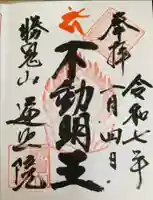 奉拝
令和七年
一月四日
不動明王
勝鬼山
院